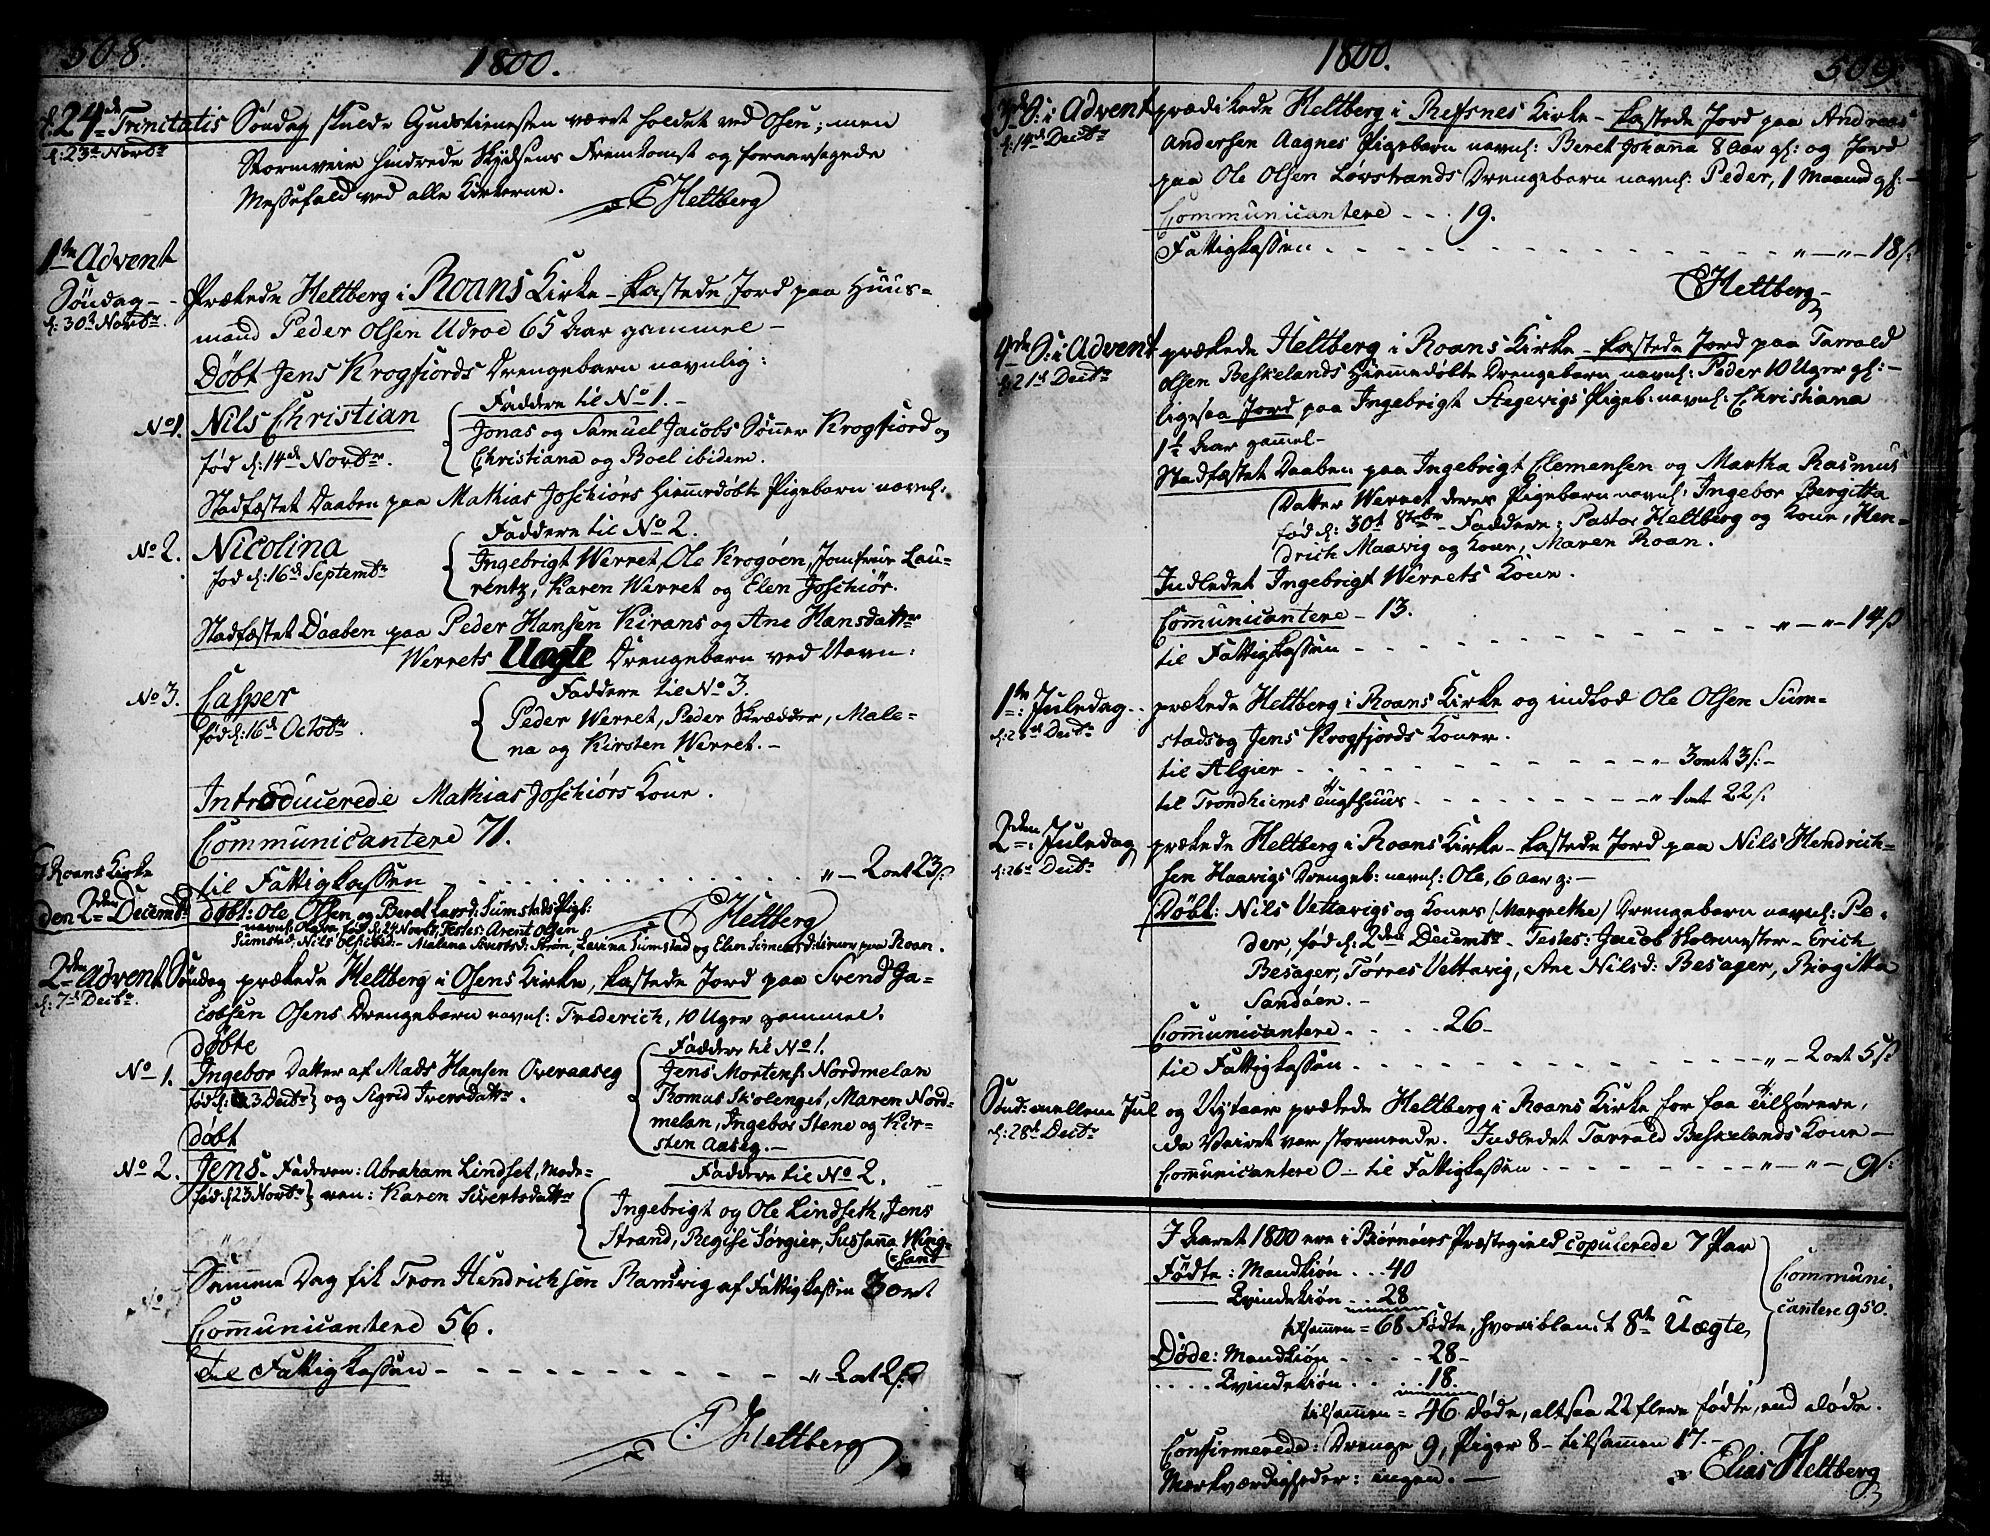 508.
1800.
d: 24de Trinitatis Søndag skulde Gudstienesten været holdet ved Osen; men
d: 23de Novbr Stormveir hindrede Skydsens Fremkomst og foraarsagede
Messefald ved alle Kirkerne.
E Heltberg
1ste Advent
Søndag - - Prækede Heltberg i Roans Kirke - kastede Jord paa Huus=
d: 30te Novbr. mand Peder Olsen Udroe 65 Aar gammel -
Døbt Jens Krogfiords Drengebarn navnlig:
No 1. Nils Christian
fød d: 14de Novbr.
Faddere til No 1. -
Jonas og Samuel Jacobs Sønner Krogfiord og
Christiana og Boel ibidem.
Stadfæstet Daaben paa Mathias Joschiørs Hiemmedøbte Pigebarn navnl:
No 2. Nicolina
fød d: 16de Septembr
Faddere til No 2.
Ingebrigt Werret, Ole Krogøen, Jomfrue Lau=
rentz, Karen Werret og Elen Joschiør.
Stadfæstet Daaben paa Peder Hansen Kirans og Ane Hansdattr
Werrets Uægte Drengebarn ved Navn:
No 3. Casper
fød d: 16de Octobr
Faddere til No 3.
Peder Werret, Peder Skrædder, Male=
na og Kirsten Werret. -
Introducerede Mathias Joschiørs Kone.
Communicantere 71.
til Fattigkassen - - - „ - 2 ort 23 s.
I Roans Kirke
den 2den Decembr døbt: Ole Olsen og Beret Larsd: Sumstads Pigb:
navnl: Olava, fød d: 24 Novbr, Testes: Arent Olsen
Sumstad, Nils Ols: ibid: - Malena Sivertsd: Strøm, Lavina Sumstad og Elen
E Heltberg
2den Advent Søndag prækede Heltberg i Osens Kirke, kastede Jord paa Svend Ja=
d: 7de Decbr. cobsen Osens Drengebarn navnl: Frederich, 10 Uger gammel.
døbte
No 1. Ingebor Datter af Mads Hansen Overaaseg
fød d: 3 Decbr og Sigrid Iversdattr.
Faddere til No 1.
Jens Mortens: Nordmelan
Thomas Skolenget, Maren Nord=
melan, Ingebor Stene og Kir=
sten Aaseg. -
døbt
No 2. Jens. Faderen: Abraham Lindset, Mode=
fød d: 23 Novbr ren: Karen Sivertsdattr
Faddere til No 2.
Ingebrigt og Ole Lindseth, Jens
Strand, Regise Sørgier, Susanna Wing=
sand
Samme Dag fik Tron Hendrichsen Ramsvig af Fattigkassen 3 ort
Communicantere 56.
Til Fattigkassen - - - „ - 2 ort 2 s.
E. Heltberg
1800.
509.
3de S: i Advent prædikede Heltberg i Refsnes Kirke - kastede Jord paa Andreas
d: 14de Decbr Andersen Aagnes Pigebarn navnl: Beret Johanna 8 Aar gl: og Jord
paa Ole Olsen Løvstrands Drengebarn navnl: Peder, 1 Maaned gl: -
Communicantere - - - 19.
Fattigkassen - - - „ - „ - 18 s.
E Heltberg
4de S: i Advent prækede Heltberg i Roans Kirke - kastede Jord paa Tarrald
d: 21de Decbr Olsen Beskelands Hiemmedøbte Drengebarn navnl: Peder 10 Uger gl: -
ligesaa Jord paa Ingebrigt Stegevigs Pigeb: navnl: Christiana
1½ Aar gammel -
Stadfæstet Daaben paa Ingebrigt Clemensen og Martha Rasmus
Datter Werret deres Pigebarn navnl: Ingebor Bergitta
fød d: 30te 8tobr - Faddere: Pastor Heltberg og Kone, Hen=
drich Maavig og Kone, Maren Roan.
Indledet Ingebrigt Werrets Kone.
Communicantere - 13.
til Fattigkassen - - - „ - „ - 14 s
1ste Juledag - - prækede Heltberg i Roans Kirke og indlod Ole Olsen Sum=
d: 25de Decbr stads og Jens Krogfjords Koner.
til Algier - - - „ 3 ort 3 s. -
til Trondhiems Tugthuus - - - „ 1 ort 22 s.
2den Juledag prækede Heltberg i Roans Kirke - kastede Jord paa Nils Hendrich=
d: 26de Decbr sen Haavigs Drengeb: navnl: Ole, 6 Aar g: -
Døbt: Nils Vettavigs og Kones (Margrethe) Drengebarn navnl: Pe=
der, fød d: 2den Decembr - Testes: Jacob Skolemester - Erich
Besager, Tørres Vettavig, Ane Nilsd: Besager, Birgitta
Sandøen. -
Communicantere - - - 26 -
til Fattigkassen - - - „ - 2 ort 5 s
Sønd: mellem Jul og Nytaar prækede Heltberg i Roans Kirke for faa Tilhørere,
d: 28de Decbr da Veiret var stormende. Indledet Tarrald Beskelands Kone -
Communicantere 0 - til Fattigkassen - - - „ - „ - 9 s:
I Aaret 1800 ere i Biørnøers Præstegield copulerede 7 Par
Fødte: Mandkiøn - - - 40
Qvindekiøn - - - 28
tilsammen = 68 Fødte, hvoriblandt 8te Uægte,
Communi=
cantere 950.
Døde: Mandkiøn - - - 28 -
Qvindekiøn - - - 18.
tilsammen = 46 døde, altsaa 22 flere fødte, end døde.
Confirmerede: Drenge 9, Piger 8 - tilsammen 17. -
Mærkværdigheder: ingen. -
Elias Heltberg